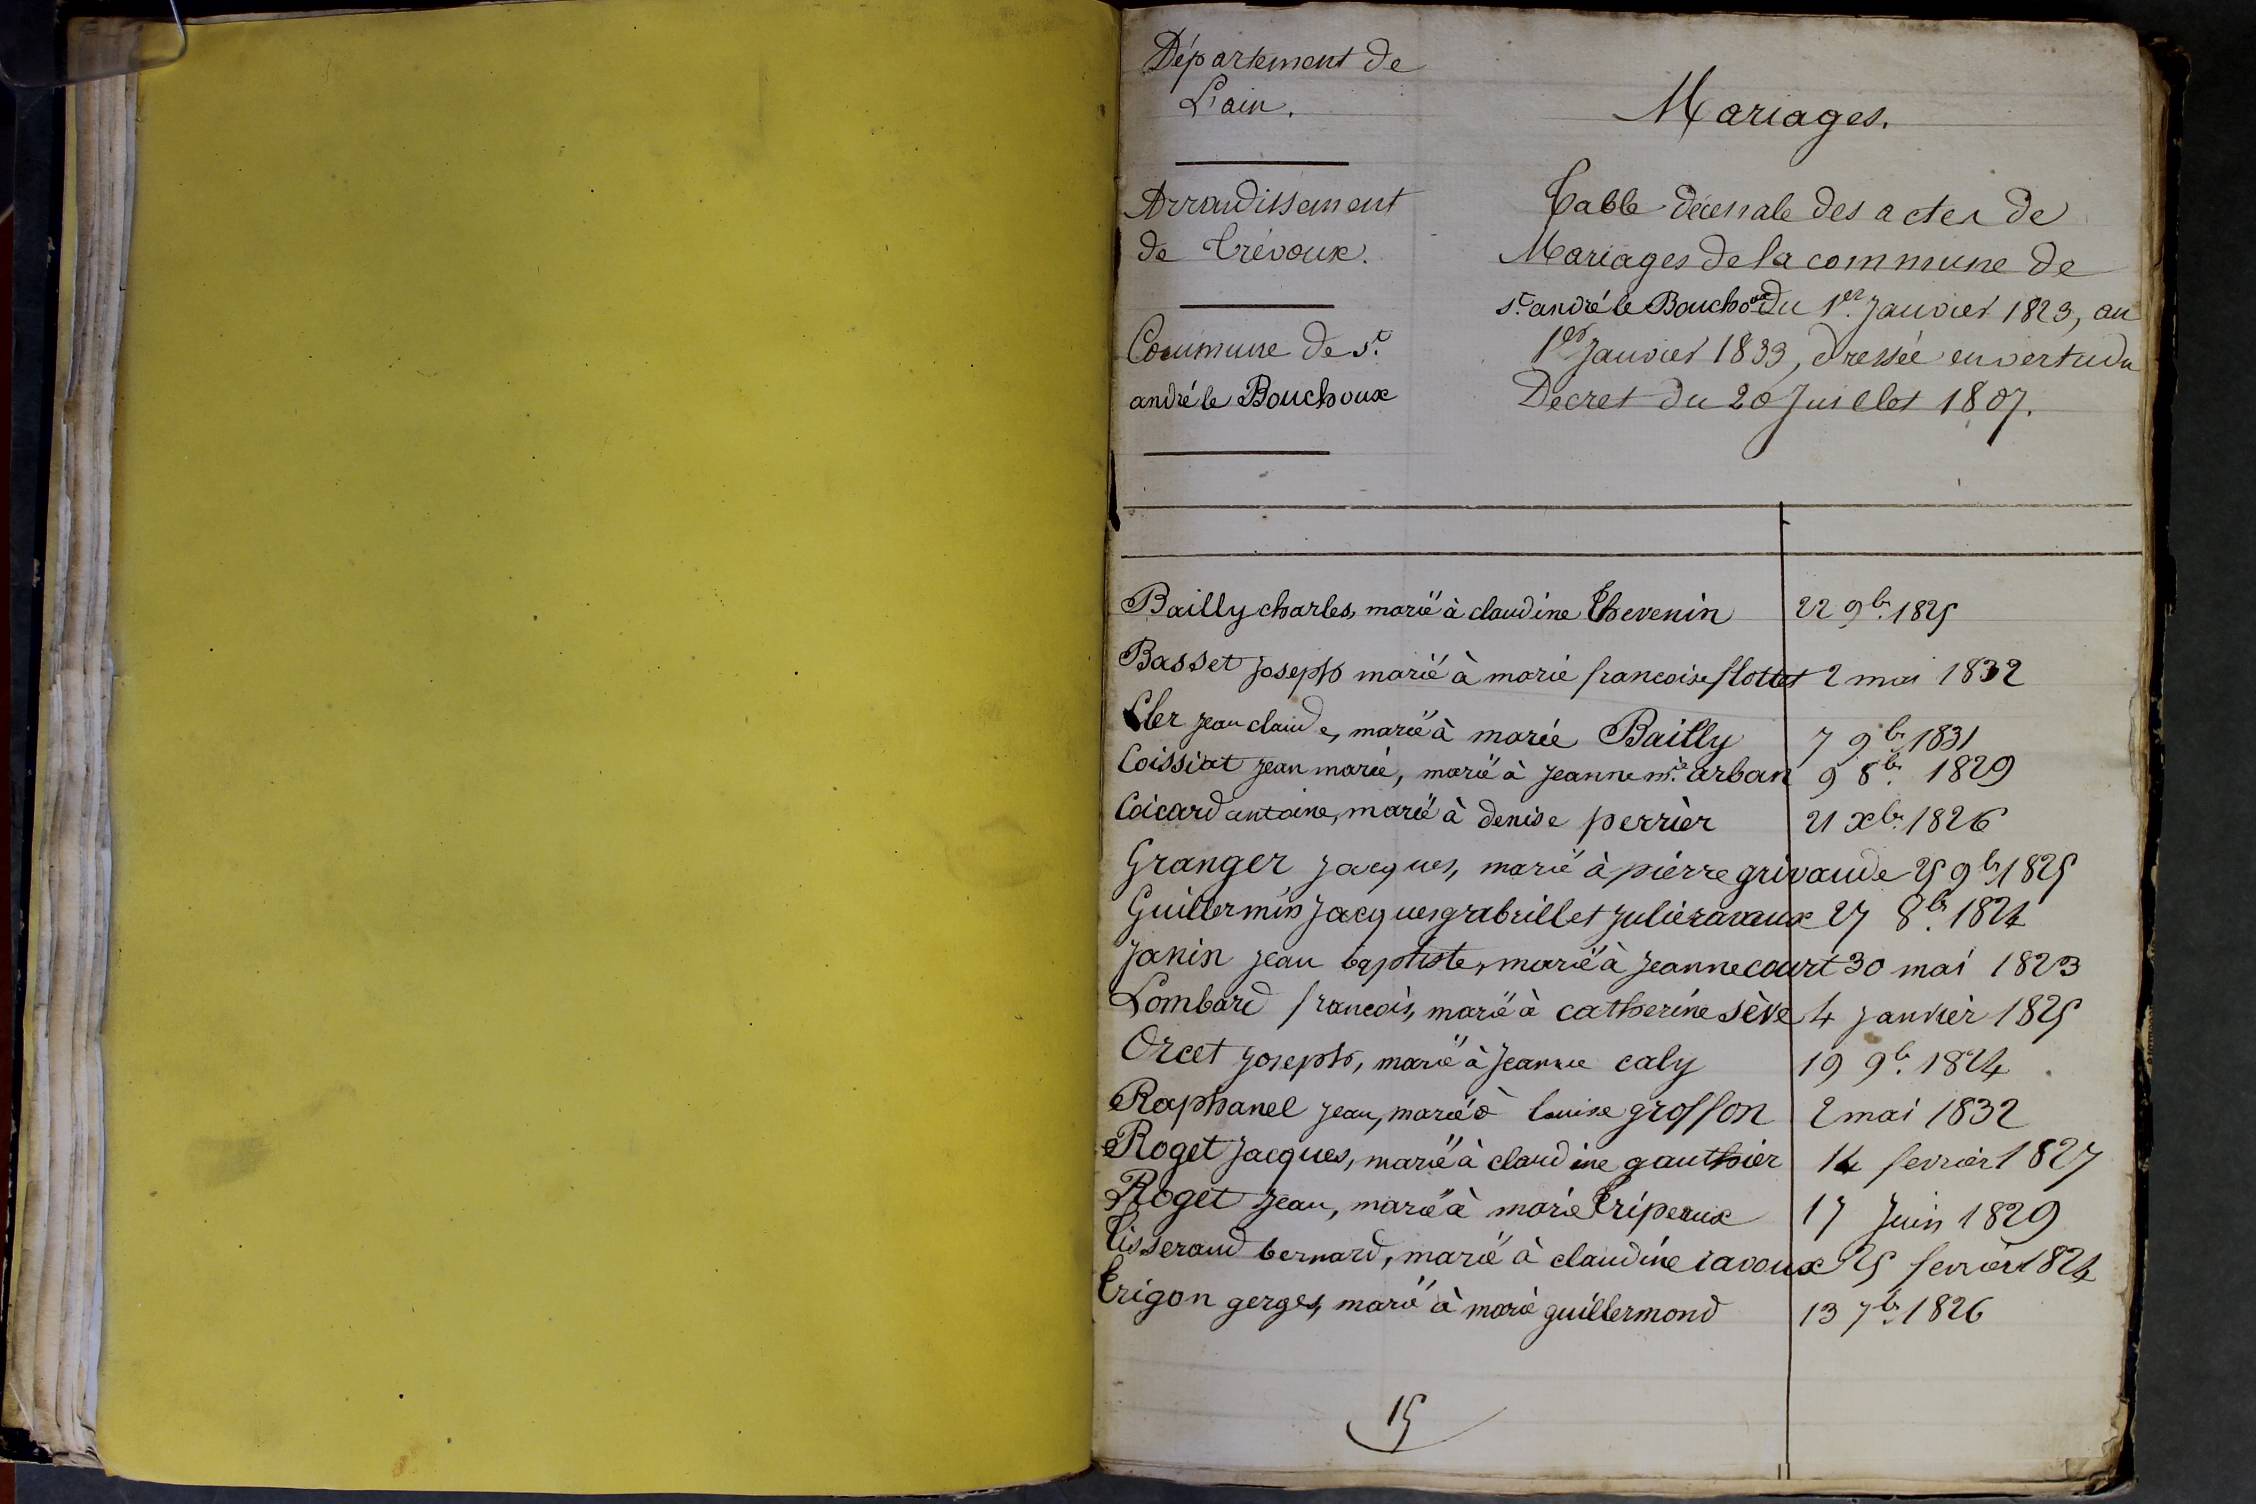 Département de
L'ain.
Arrondissement
de Trévoux.
Commune de St.
andré le Bouchoux
Mariages.
Table décenale des actes de
Mariages de la commune de
st. andré le Bouchoux du 1er Janvier 1823, au
1er Janvier 1833, dressée en vertu du
Décret du 20 Juillet 1807.
Bailly charles, marié à claudine Thevenin 22 9br. 1825
Basset joseph marié à marie francoise flottet 2 mai 1832
Cler jean claude, marié à marie Bailly 7 9br. 1831
Coissiat jean marie, marié à jeanne mie. arban 9 8br. 1829
Coicard antoine, marié à denise perrier 21 xbr. 1826
Granger jacques, marié à pierre grivaude 25 9br. 1825
Guillermin jacques grabrillet julie ravaux 27 8br. 1824
Janin jean baptiste, marié à jeanne court 30 mai 1823
Lombard francois, marié à catherine sève 4 janvier 1825
Orcet joseph, marié à jeanne caly 19 9br. 1824
Raphanel jean, marié à louise grosson 2 mai 1832
Roget jacques, marié à claudine gauthier 14 fevrier 1827
Roget jean, marié à marie Tripeaux 17 Juin 1829
Tisserand bernard, marié à claudine ravoux 25 fevrier 1824
Trigon gerges, marié à marie guillermond 13 7br. 1826
15